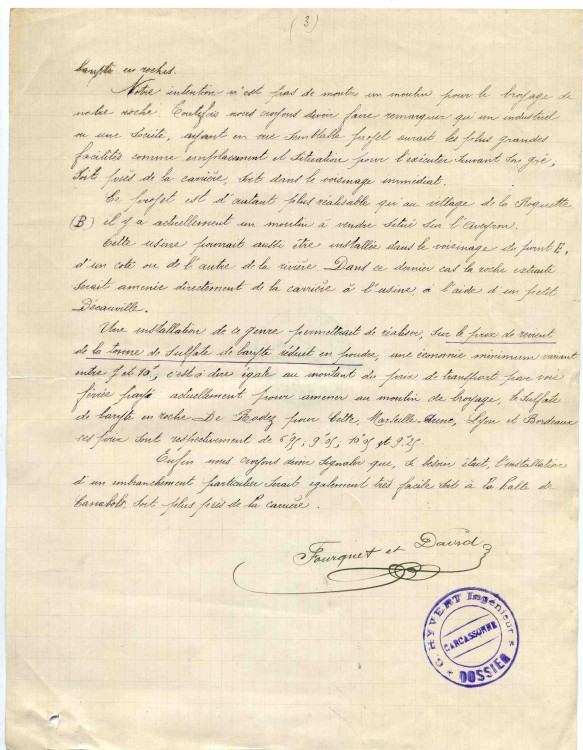 (3)
baryte en roches.
Notre intention n'est pas de monter un moulin pour le broyage de
notre roche. Toutefois nous croyons devoir faire remarquer qu'un industriel
ou une Société, ayant en vue semblable projet aurait les plus grandes
facilités comme emplacement et situation pour l'exécuter suivant son gré,
soit près de la carrière, soit dans le voisinage immédiat.
Ce projet est d'autant plus réalisable qu'au village de la Roquette
(B) il y a actuellement un moulin à vendre situé sur l'Aveyron.
Cette usine pourrait aussi être installée dans le voisinage du point E,
d'un coté ou de l'autre de la rivière. Dans ce dernier cas la roche extraite
serait amenée directement de la carrière à l'usine à l'aide d'un petit
Décauville.
Une installation de ce genre permettrait de réaliser, sur le prix de revient
de la tonne de sulfate de baryte réduit en poudre, une économie minimum variant
entre et 10f, c'est à dire égale au montant du prix de transport par voie
ferrée payé actuellement pour amener au moulin de broyage, le sulfate
de baryte en roche. De Rodez pour Cette, Marseille, Lyon et Bordeaux
ces prix sont respectivement de
Enfin nous croyons devoir signaler que, si besoin était, l'installation
d'un embranchement particulier serait également très facile soit à la halte de
Canabols, soit plus près de la carrière.
Fourquet et David
G. HYVERT Ingénieur
CARCASSONNE
* DOSSIER *